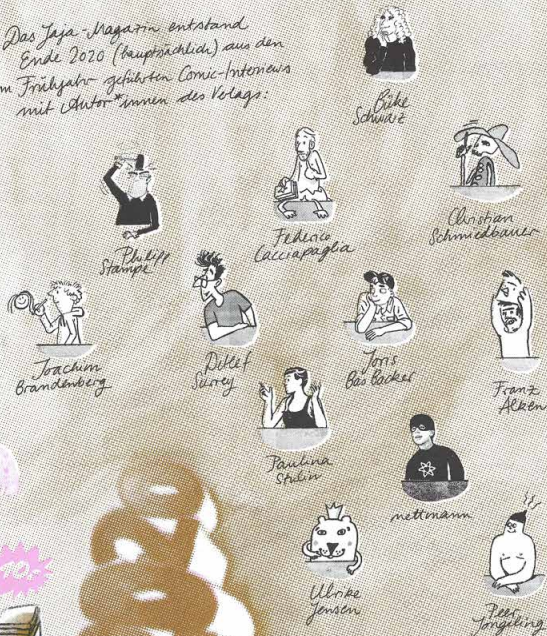 Das Jaja-Magazin entstand
Ende 2020 (hauptsächlich) aus den
m Frühjahr geführten Comic-Interviews
mit Autor*innen des Verlags:
Büke
Schwarz
Philipp
Stampe
Federico
Cacciapaglia
Christian
Schmiedbauer
Joachim
Brandenberg
Detlef
Surrey
Joris
Bas Backer
Franz
Alken
Paulina
Stulin
nettmann
Ulrike
Jensen
Peer
Jongeling
10,-